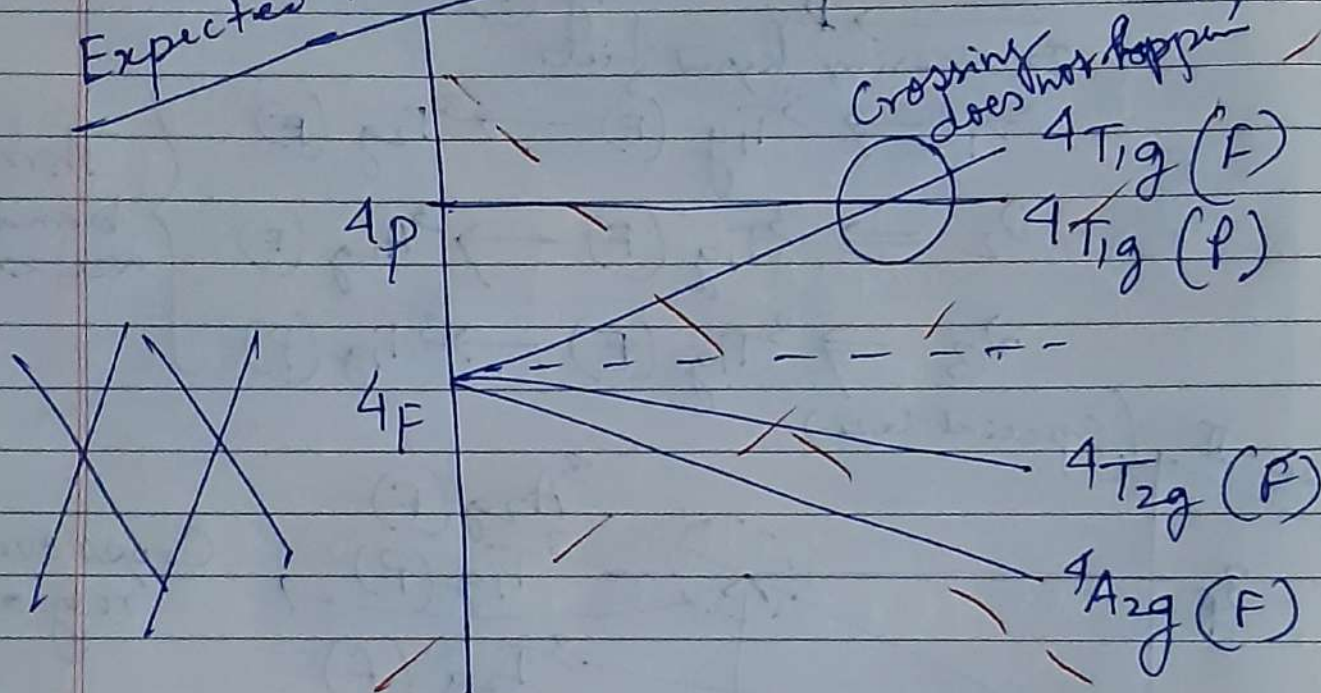 Expected
Crossing
does not happen
4T1g (F)
4P
4T1g (P)
4F
4T2g (F)
4A2g (F)